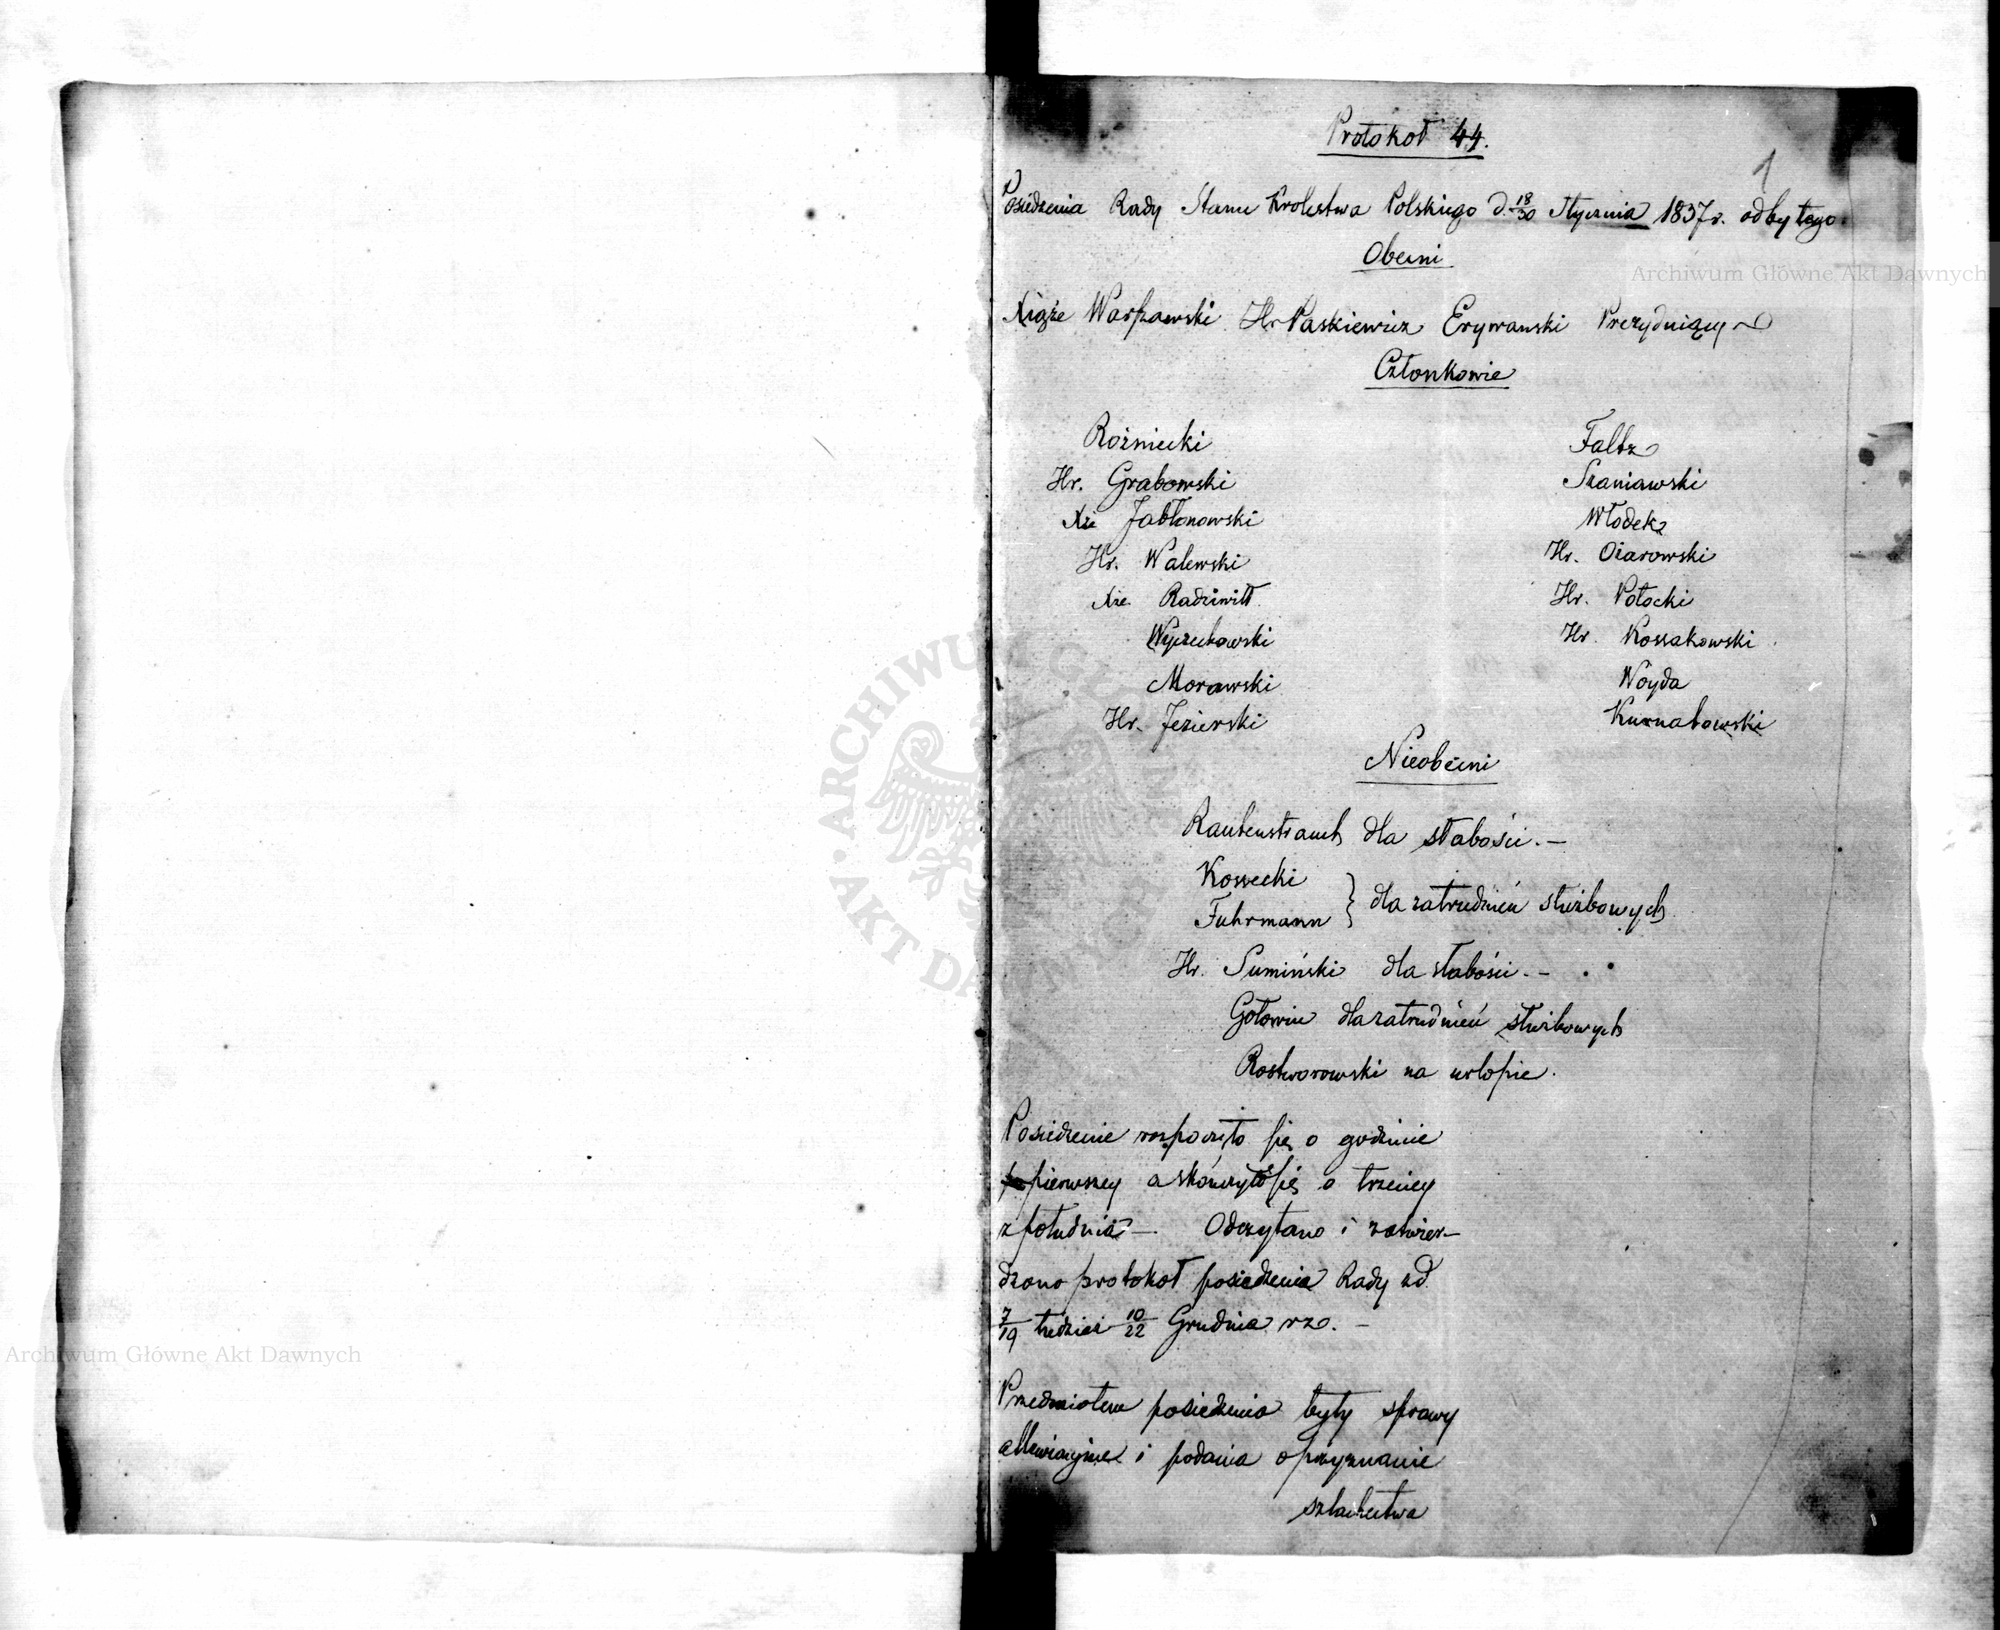 Protokół 44.
1
Posiedzenia Rady Stanu Królestwa Polskiego d. 18/30 Stycznia 1837 r. odbytego.
Obecni
Xiąże Warszawski Hr Paskiewicz Erywański Prezydujący
Członkowie
Rożniecki
Hr. Grabowski
Xże Jabłonowski
Hr. Walewski
Xże Radziwiłł
Wyczechowski
Morawski
Hr. Jezierski
Faltz
Szaniawski
Włodek
Hr. Ożarowski
Hr. Potocki
Hr. Kossakowski
Woyda
Kurnatowski
Nieobecni
Rautenstrauch dla słabości. —
Kossecki
Fuhrmann } dla zatrudnień służbowych
Hr. Sumiński dla słabości. —
Gołowin dla zatrudnień służbowych
Rostworowski na urlopie.
Posiedzenie rozpoczęło się o godzinie
pierwszey a skończyło się o trzeciey
z południa — Odczytano i zatwier-
dzono protokół posiedzenia Rady z d.
7/19 tudzież 10/22 Grudnia r. z. —
Przedmiotem posiedzenia były sprawy
allewiacyjne i podania o przyznanie
szlachectwa
Archiwum Główne Akt Dawnych
Archiwum Główne Akt Dawnych
ARCHIWUM GŁÓWNE AKT DAWNYCH